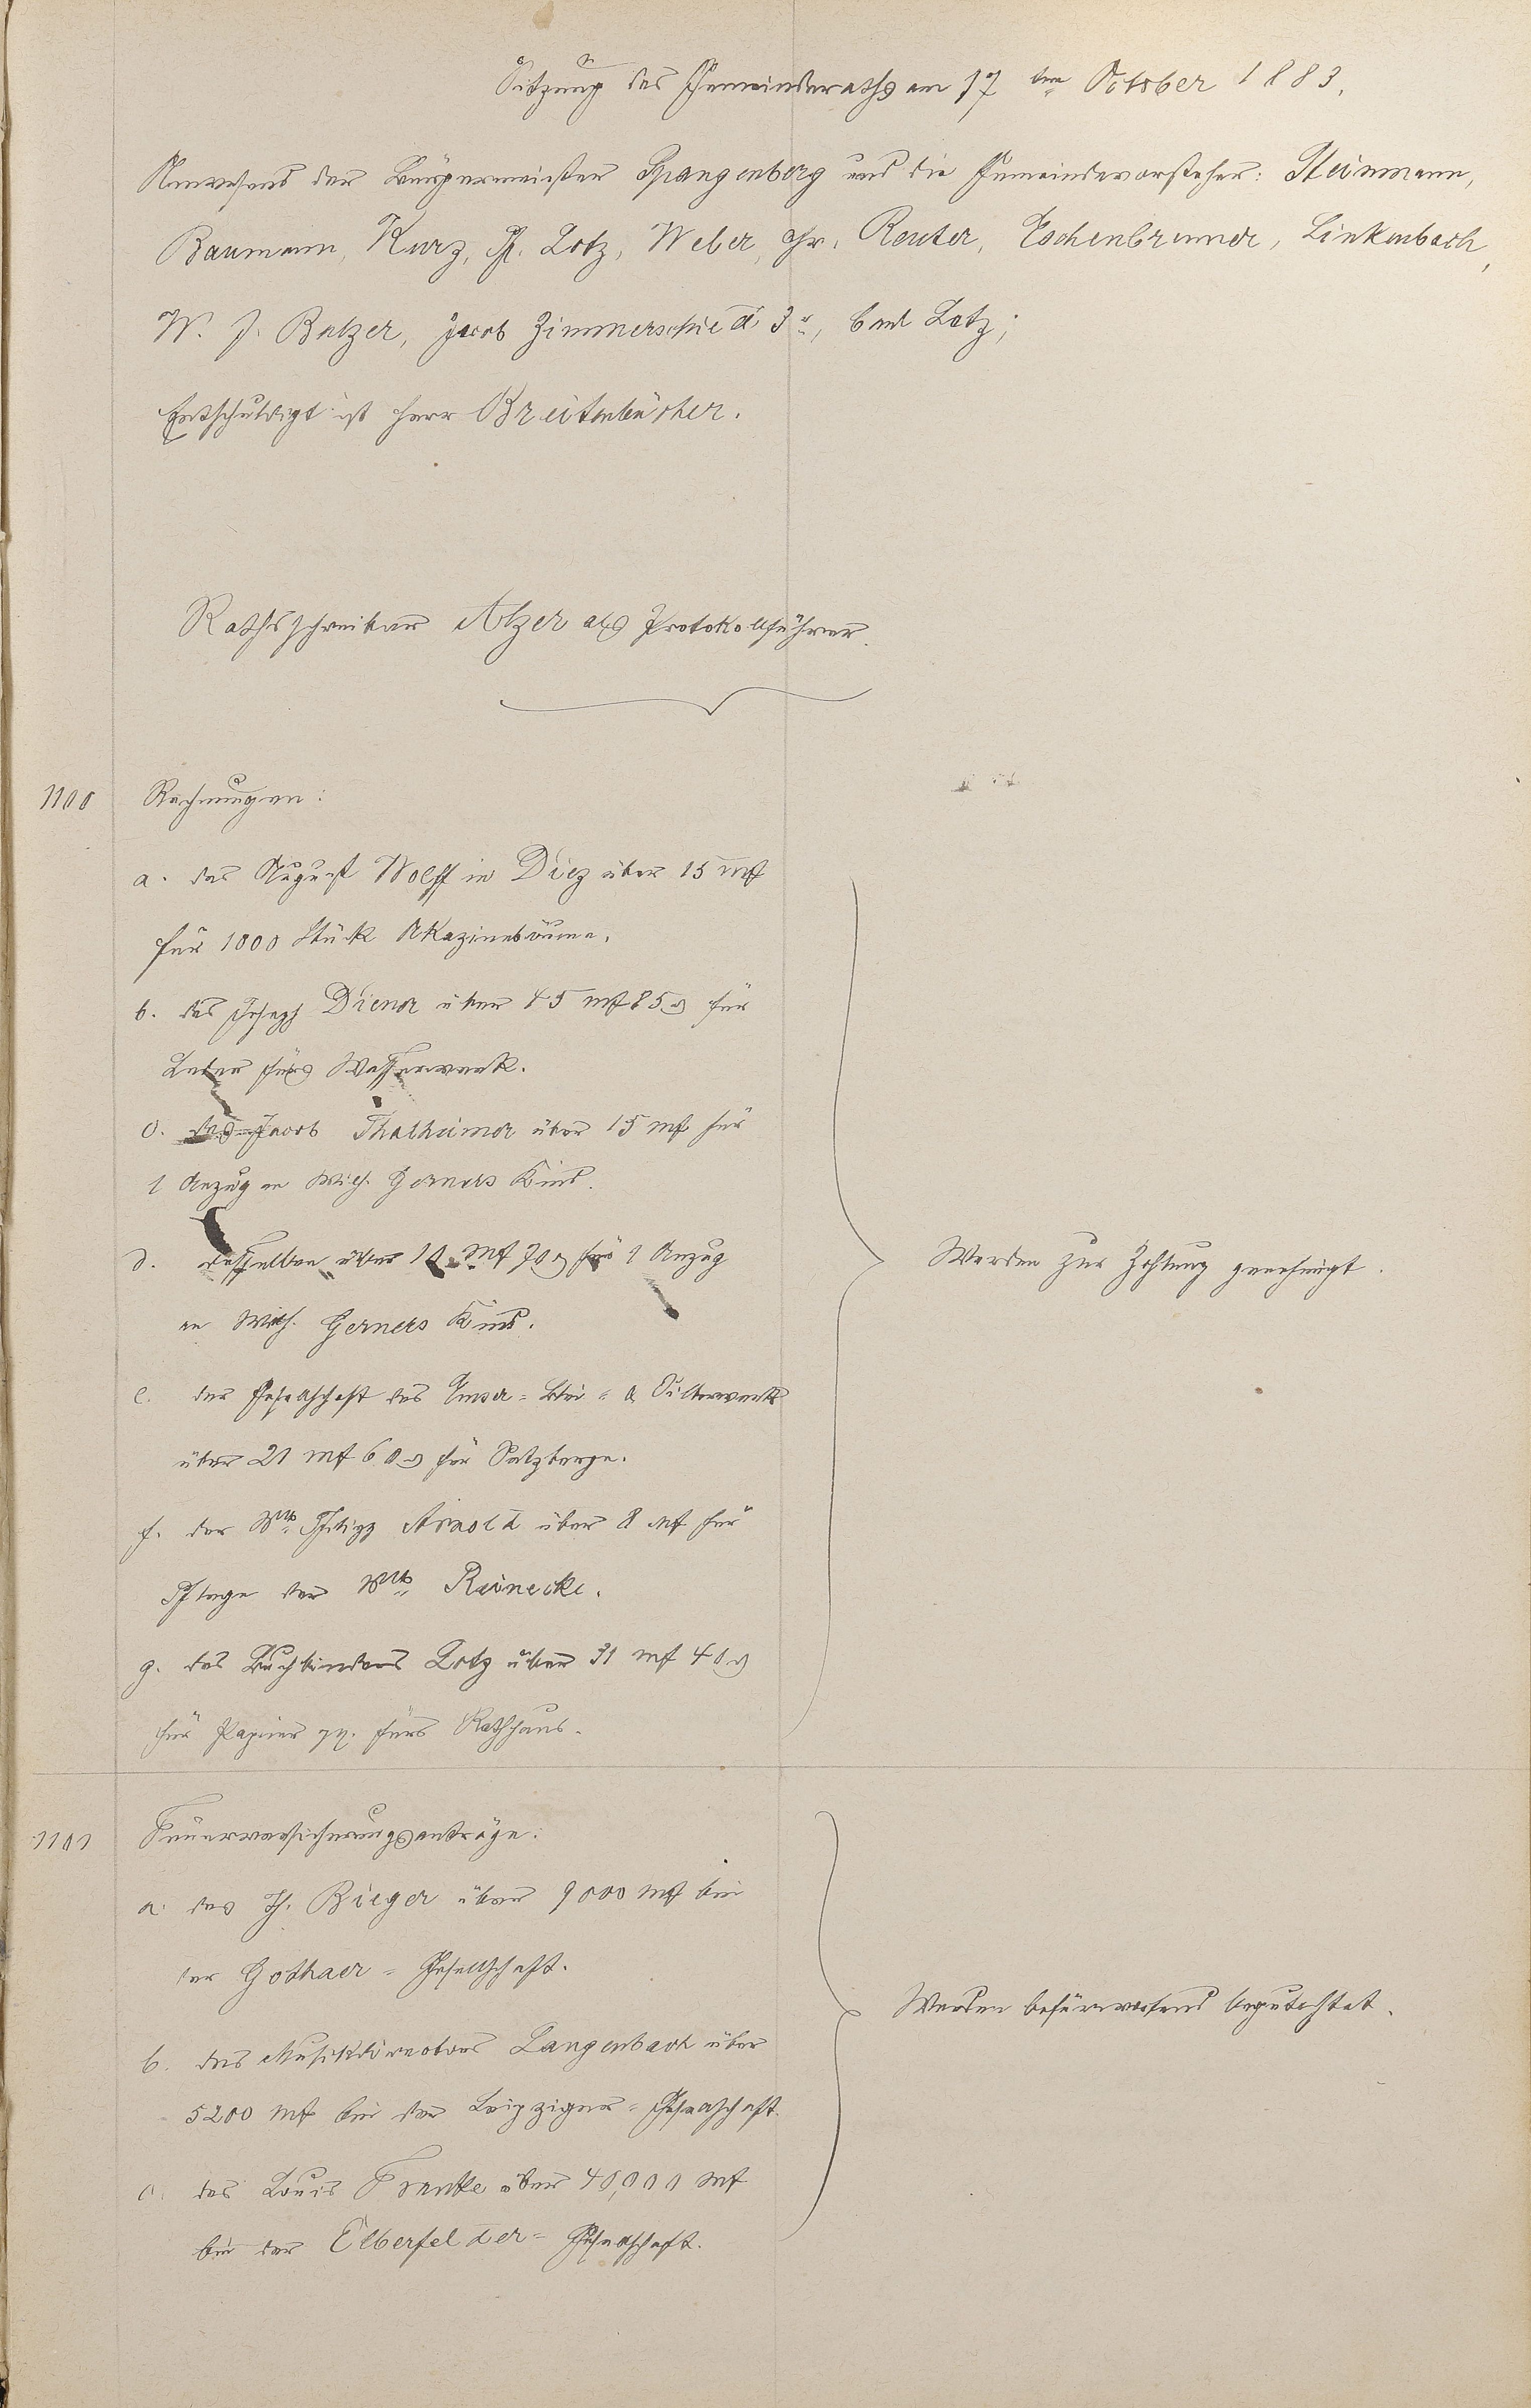 Sitzung des Gemeinderaths am 17ten October 1883.
Anwesend der Bürgermeister Spangenberg und die Gemeindevorsteher: Steinmann,
Baumann, Kurz, Ph. Lotz, Weber, Chr. Reuter, Eschenbrenner, Linkenbach,
W. J. Balzer, Jacob Zimmerschied 3r, Carl Lotz;
Entschuldigt ist Herr Breitenbücher.
Rathsschreiber Alzer als Protokollführer.
1100 Rechnungen:
a. des August Wolff in Diez über 15 Mk
für 1000 Stück Akazienbäume.
b. des Joseph Diener über 45 Mk 85 ₰ für
Leder fürs Wasserwerk.
c. des Jacob Thalheimer über 15 Mk für
1 Anzug an Wilh. Gerners Kind.
d. desselben über 10 Mk 70 ₰ für 1 Anzug
an Wilh. Gerners Kind.
Werden zur Zahlung genehmigt.
e. der Gesellschaft des Emser-Blei- & Silberwerks
über 21 Mk 60 ₰ für Salzberge.
f. der Wtb Philipp Arnold über 8 Mk für
Pflege der Wtb Reinecke.
g. des Buchbinders Lotz über 31 Mk 40 ₰
für Papier pp. fürs Rathhaus.
1101 Feuerversicherungsanträge:
a. des Th. Bieger über 9000 Mk bei
der Gothaer-Gesellschaft.
Werden befürwortend begutachtet.
b. des Musikdirectors Langenbach über
5200 Mk bei der Leipziger-Gesellschaft.
c. des Louis Franke über 40,000 Mk
bei der Elberfelder-Gesellschaft.